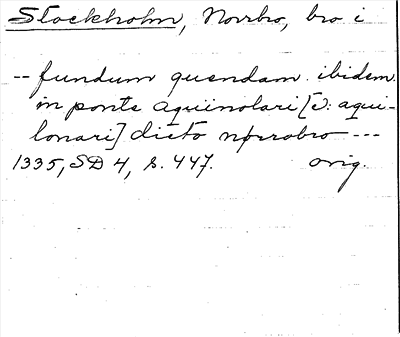 Stockholm, Norrbro, bro i
-- fundum quendam ibidem
in ponte aquinolari [ɔ: aqui-
lonari] dicto norrobro ---
1335, SD 4, s. 447. orig.